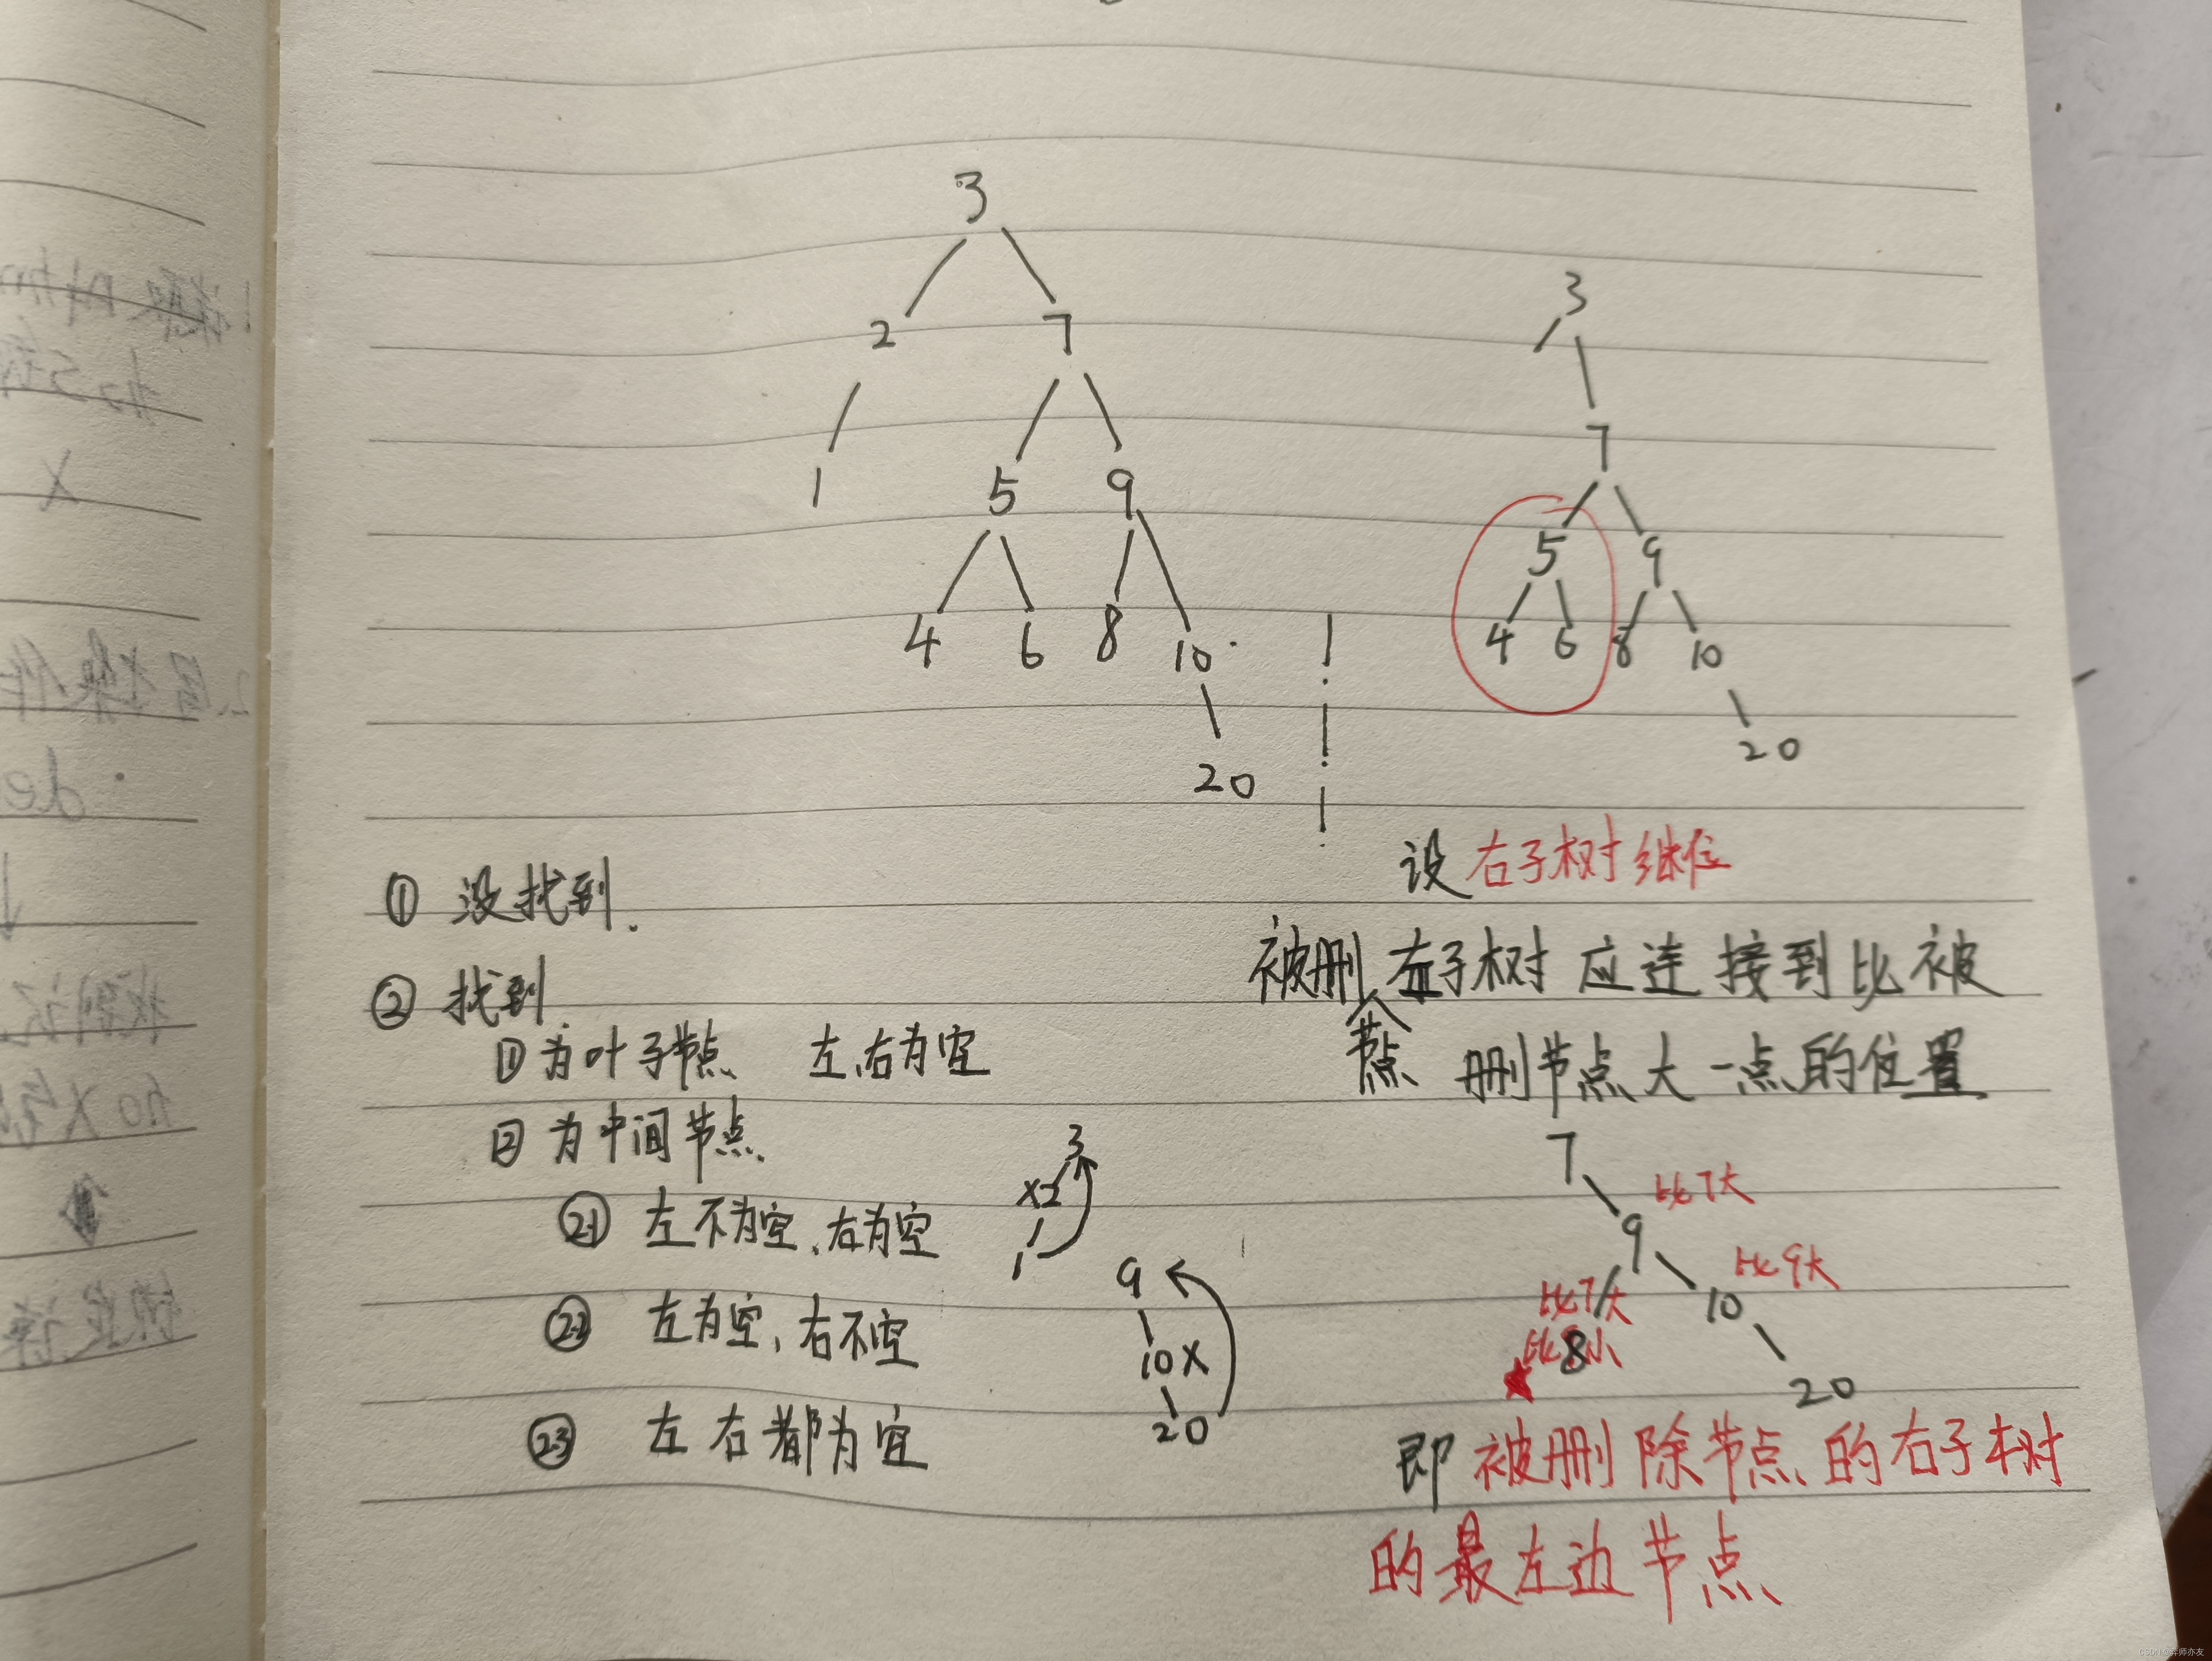 3
2 7
1 5 9
4 6 8 10
20
3
7
5 9
4 6 8 10
20
① 没找到.
② 找到.
① 为叶子节点 左,右为空
② 为中间节点.
2.1 左不为空、右为空
3
X2
1
2.2 左为空、右不空
9
10X
20
2.3 左右都为空
设右子树继位
被删节点左子树应连接到比被
删节点大一点的位置
7
比7大
9
比9大
比7大
10
8
20
即被删除节点的右子树
的最左边节点